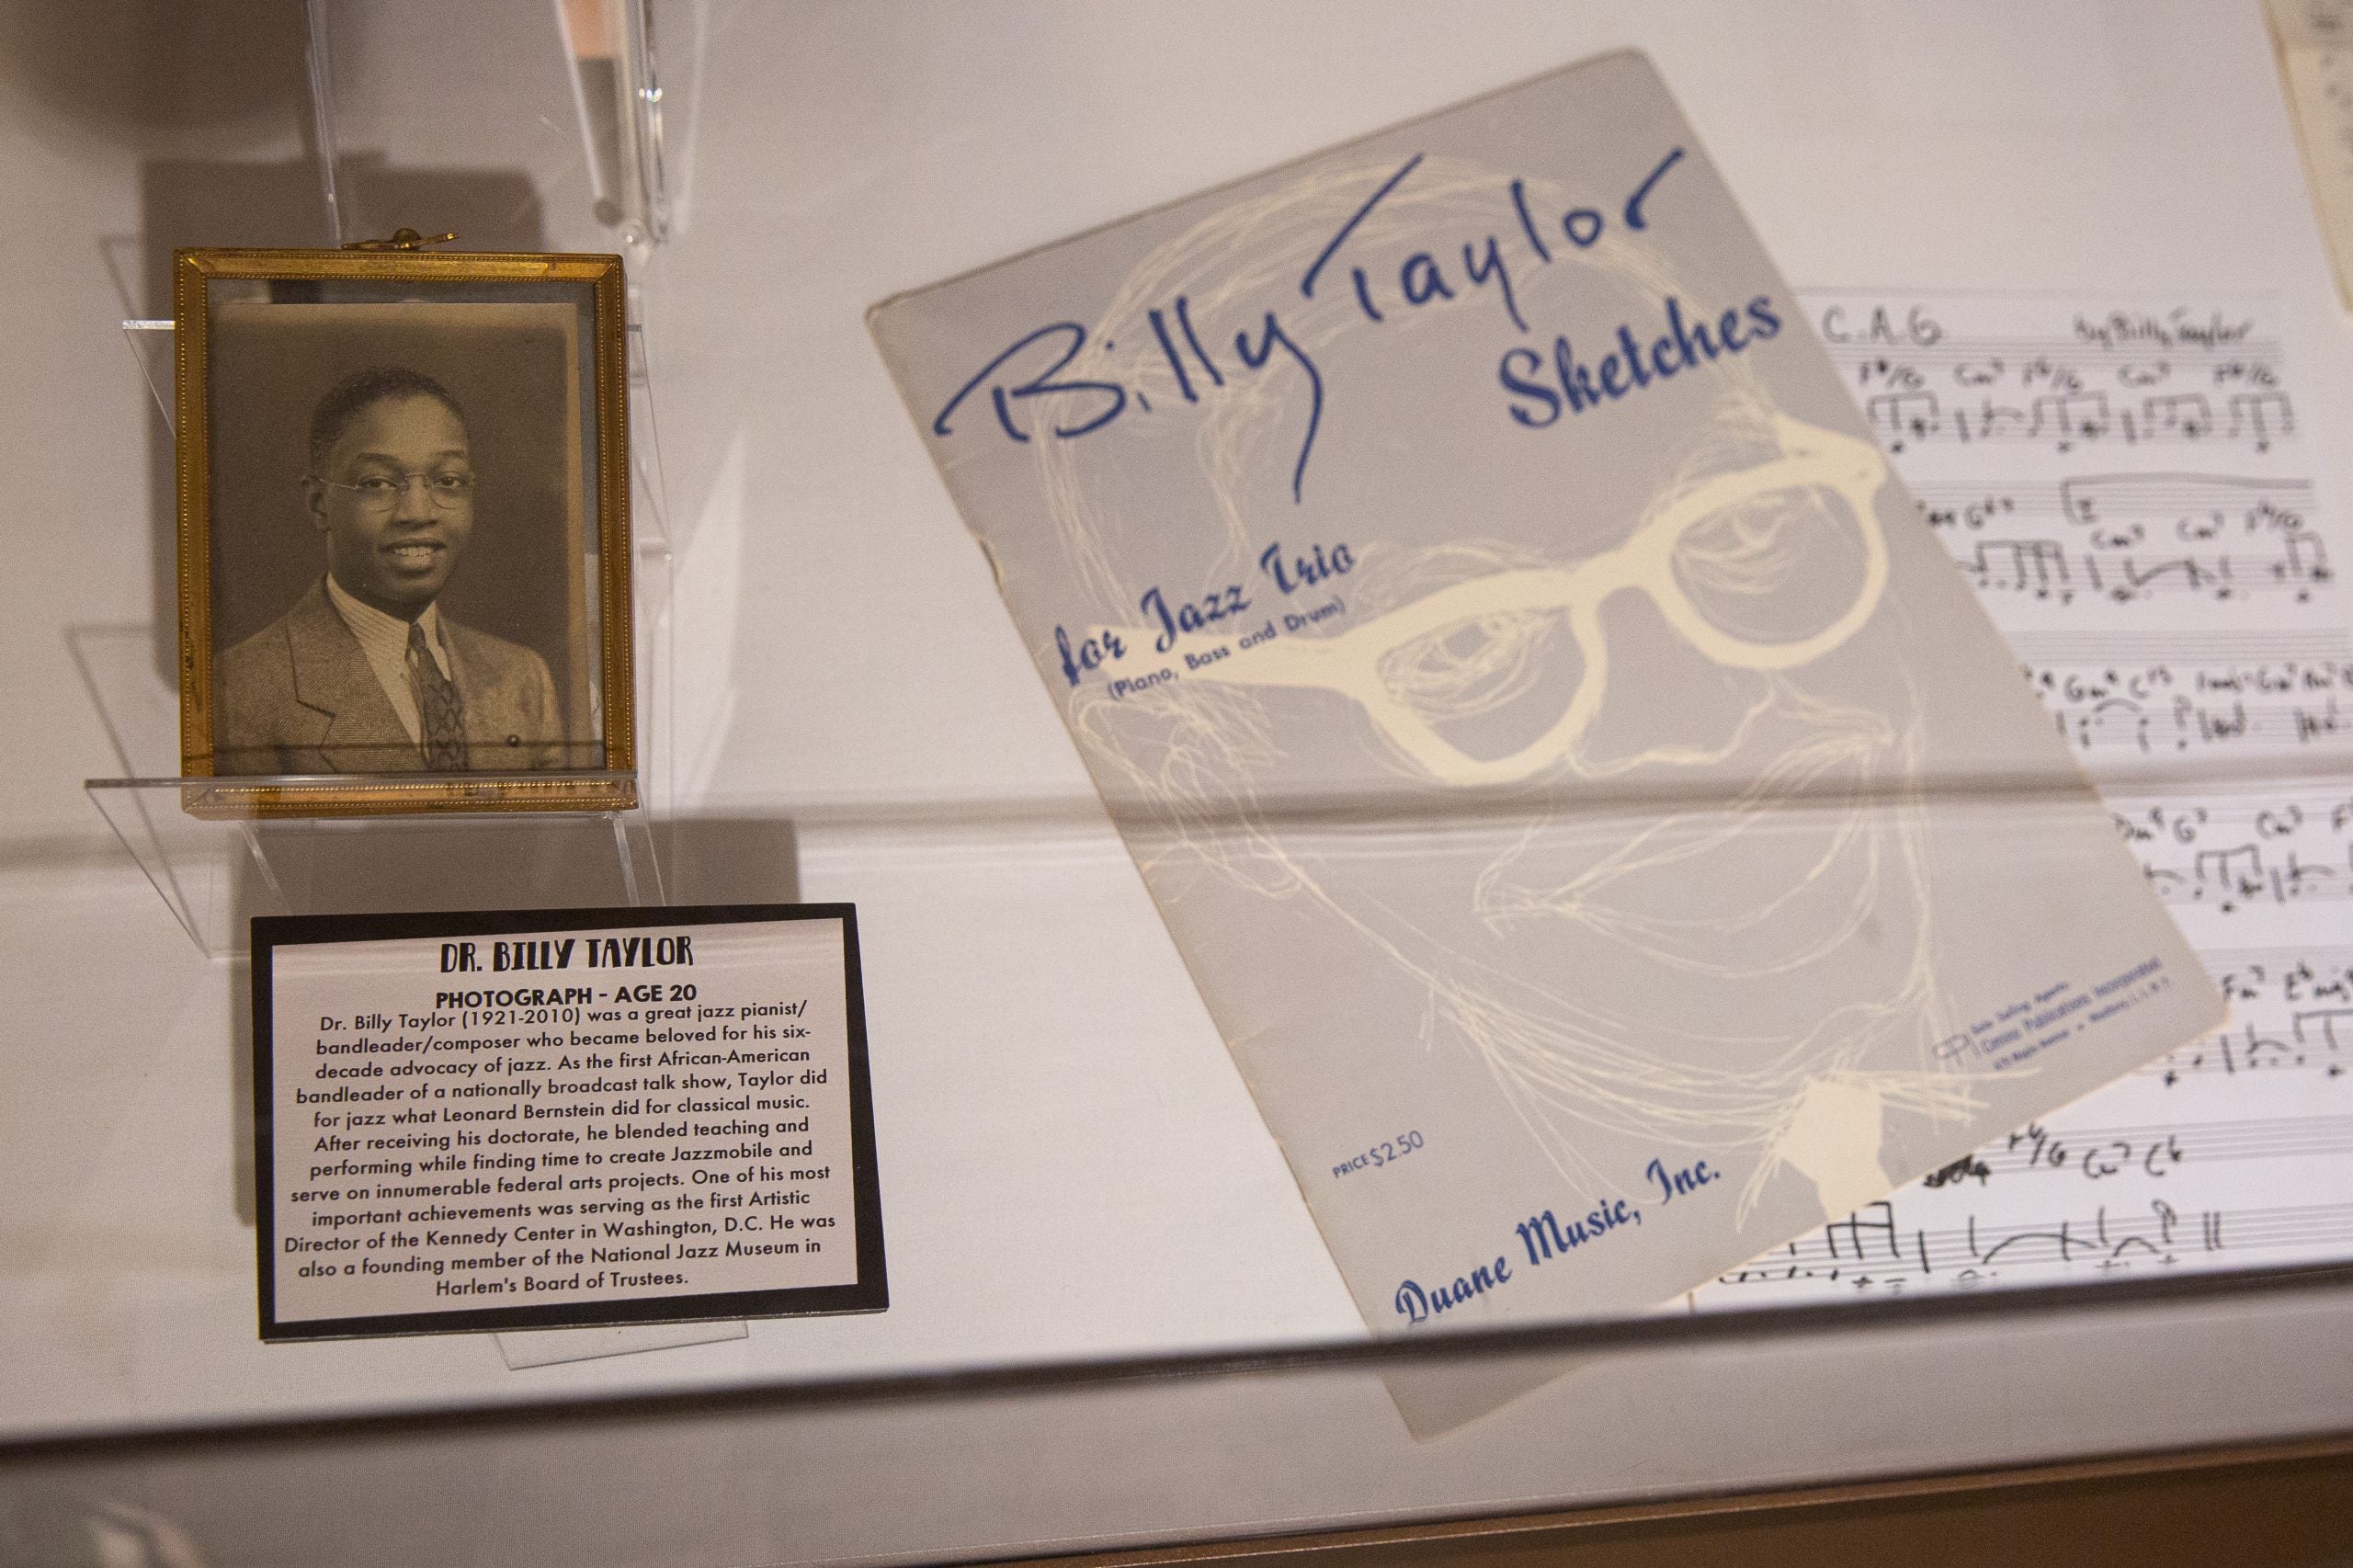 DR. BILLY TAYLOR
PHOTOGRAPH - AGE 20
Dr. Billy Taylor (1921-2010) was a great jazz pianist/
bandleader/composer who became beloved for his six-
decade advocacy of jazz. As the first African-American
bandleader of a nationally broadcast talk show, Taylor did
for jazz what Leonard Bernstein did for classical music.
After receiving his doctorate, he blended teaching and
performing while finding time to create Jazzmobile and
serve on innumerable federal arts projects. One of his most
important achievements was serving as the first Artistic
Director of the Kennedy Center in Washington, D.C. He was
also a founding member of the National Jazz Museum in
Harlem's Board of Trustees.
Billy Taylor
Sketches
for Jazz Trio
(Piano, Bass and Drum)
PRICE $2.50
Duane Music, Inc.
Sole Selling Agents
Publications Incorporated
C.A.G. by Billy Taylor